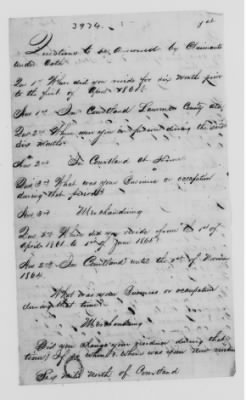 3974.
Questions to be answered by Claimants
under Oath
Ques 1st Where did you reside for six months prior
to the first of April 1861
Ans 1st In Courtland Lawrence County Ala
Ques 2nd Where were you in person during the said
six months
Ans 2nd In Courtland at Home
Ques 3rd What was your Business or occupation
during that period
Ans 3rd Merchandising
Ques 5th Where did you reside from 1st of
April 1861 to 1st of June 1865
Ans In Courtland until the of
1864
What was your Business or occupation
during that time
Merchandising
Did you change your residence during that
time If so when & where was your new residence
miles North of Courtland